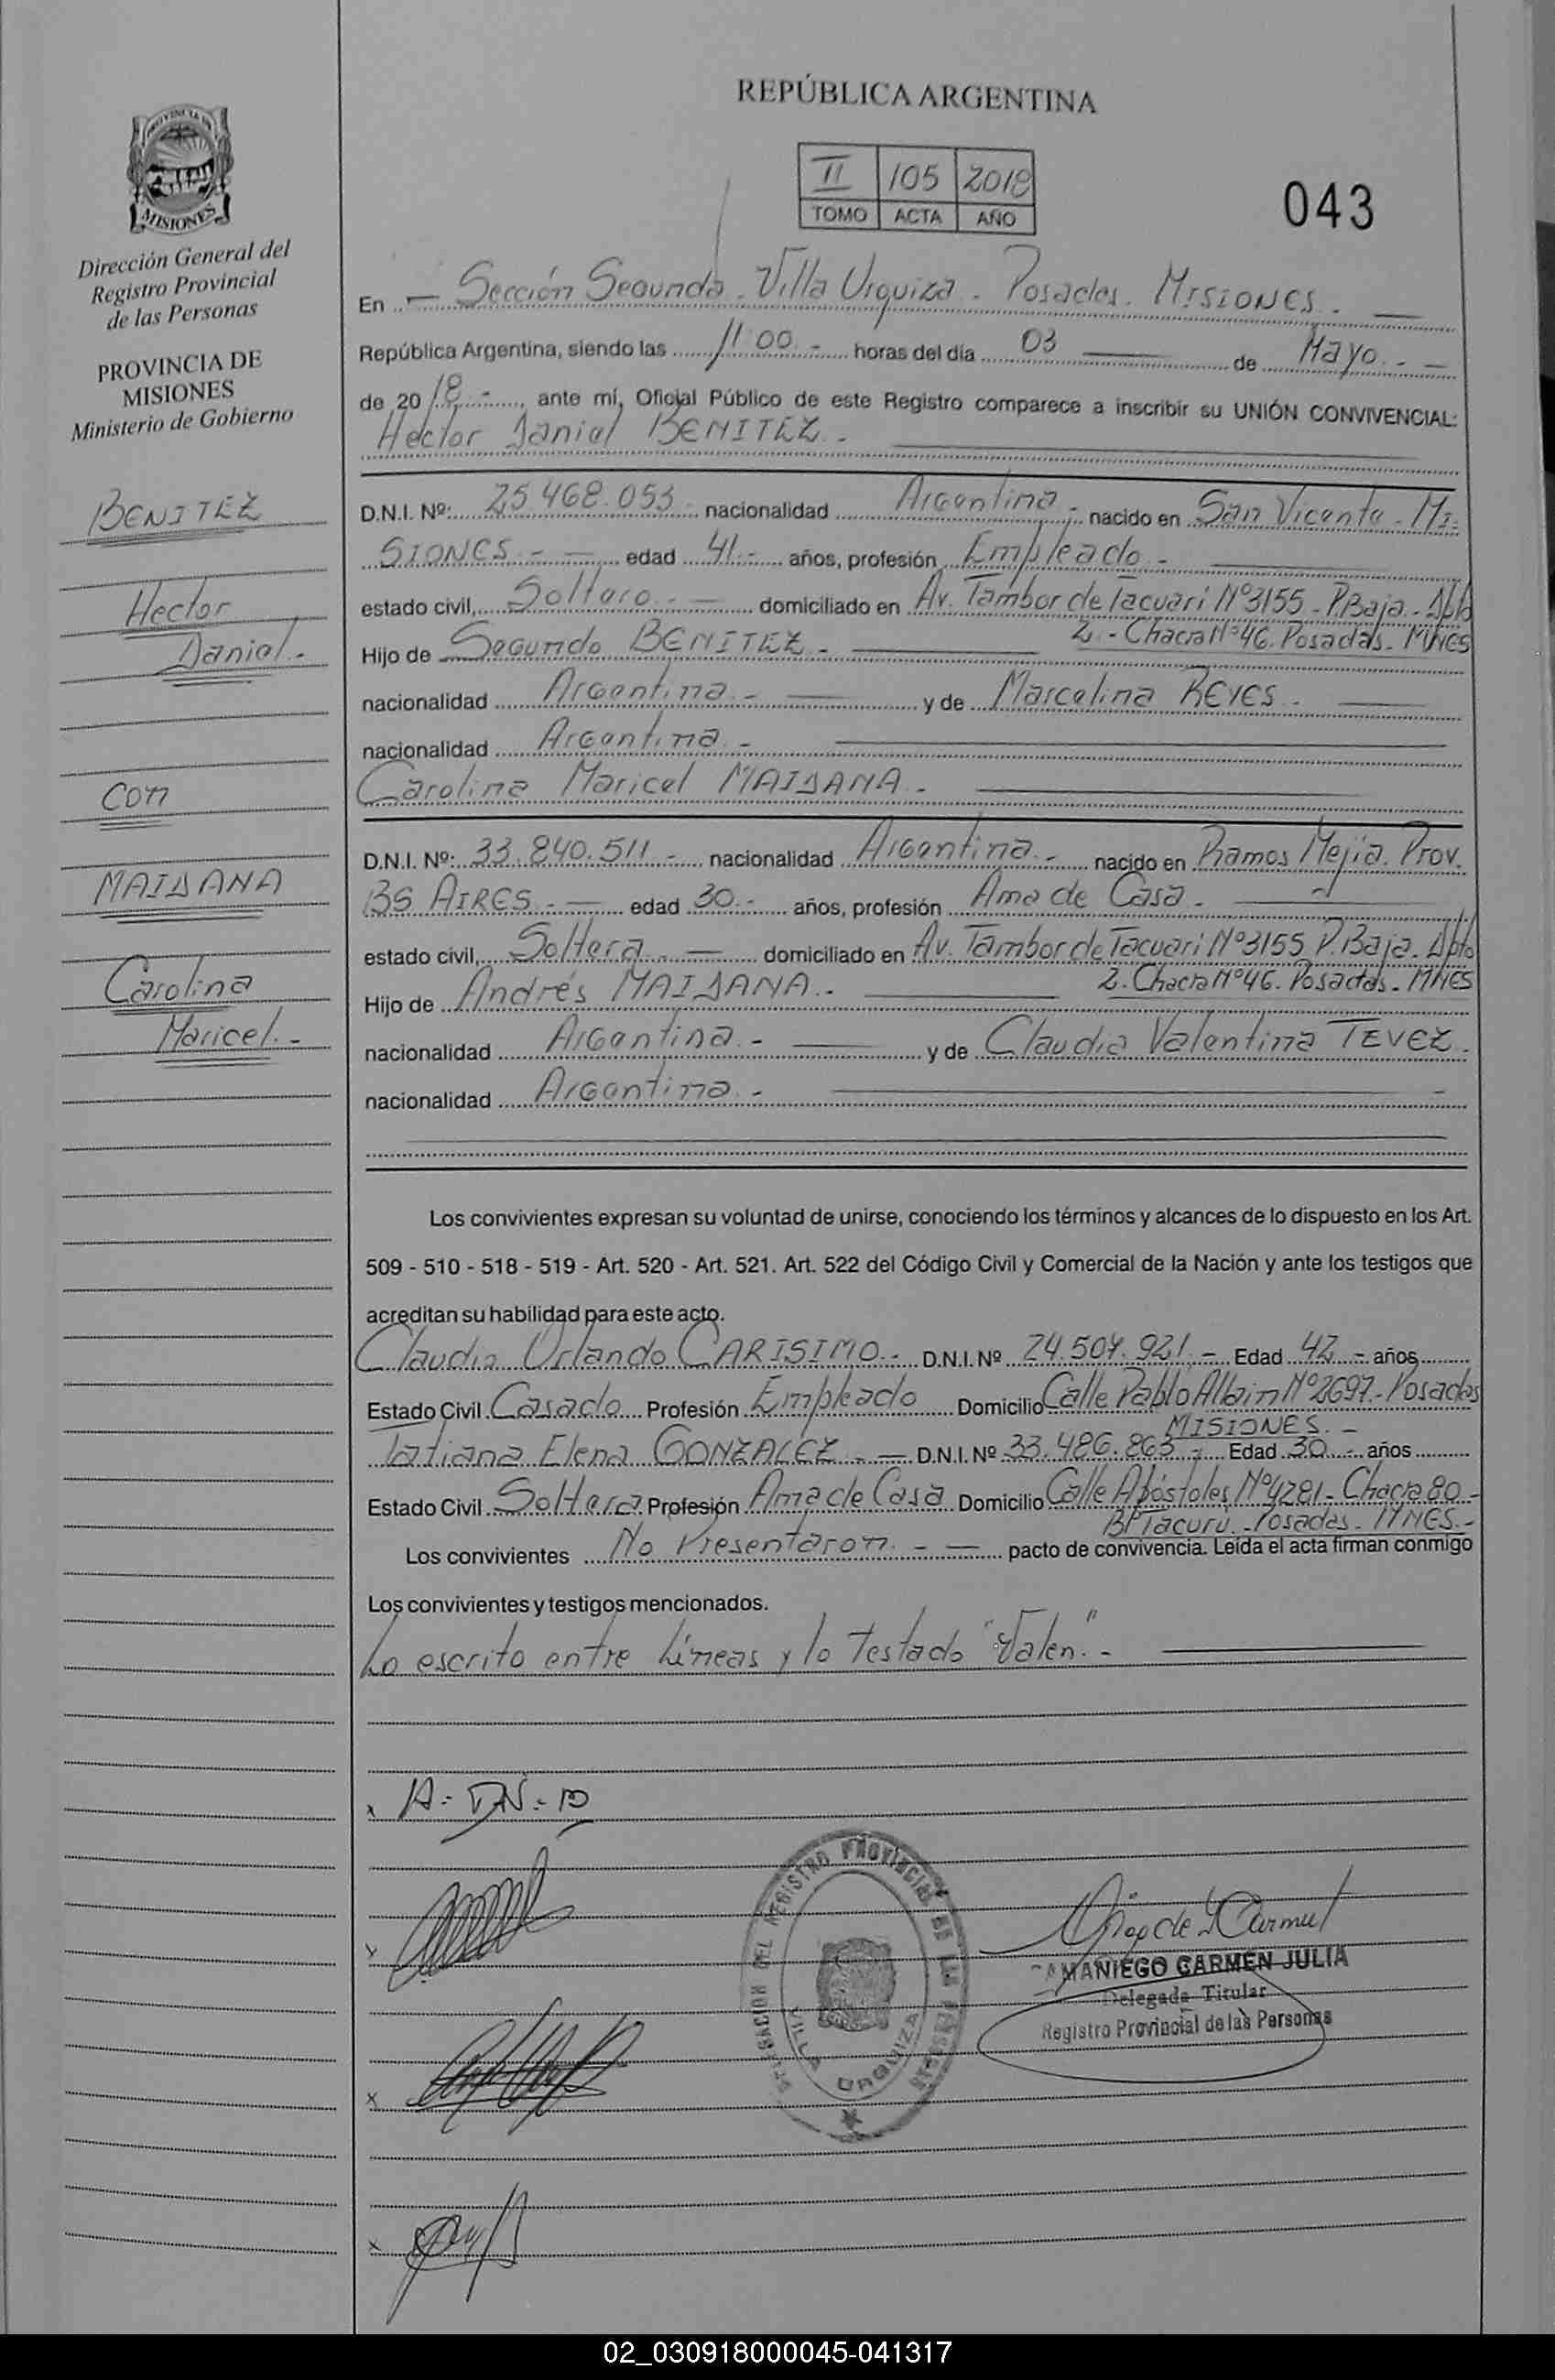 PROVINCIA DE
MISIONES
Dirección General del
Registro Provincial
de las Personas
PROVINCIA DE
MISIONES
Ministerio de Gobierno
BENITEZ
Hector
Daniel.-
con
MAIDANA
Carolina
Maricel.-
REPÚBLICA ARGENTINA
II 105 2018
TOMO ACTA AÑO
043
En - Sección Segunda - Villa Urquiza - Posadas - MISIONES. —
República Argentina, siendo las 11:00 - horas del día 03 — de Mayo.- -
de 2018.-, ante mí, Oficial Público de este Registro comparece a inscribir su UNIÓN CONVIVENCIAL:
Hector Daniel BENITEZ.-
D.N.I. Nº: 25.468.053 nacionalidad Argentina.- nacido en San Vicente - MI-
SIONES.- — edad 41.- años, profesión Empleado.-
estado civil, Soltero.- — domiciliado en Av. Tambor de Tacuari Nº3155 - P.Baja - Dpto
2.- Chacra Nº46. Posadas - MNES
Hijo de Segundo BENITEZ.-
nacionalidad Argentina.- — y de Marcelina REYES.-
nacionalidad Argentina.-
Carolina Maricel MAIDANA.-
D.N.I. Nº: 33.840.511.- nacionalidad Argentina.- nacido en Ramos Mejía. Prov.
BS AIRES.- — edad 30.- años, profesión Ama de Casa.-
estado civil, Soltera.- — domiciliado en Av. Tambor de Tacuari Nº3155 P.Baja - Dpto
2. Chacra Nº46. Posadas - MNES
Hijo de Andrés MAIDANA.-
nacionalidad Argentina.- — y de Claudia Valentina TEVEZ.
nacionalidad Argentina.-
Los convivientes expresan su voluntad de unirse, conociendo los términos y alcances de lo dispuesto en los Art.
509 - 510 - 518 - 519 - Art. 520 - Art. 521. Art. 522 del Código Civil y Comercial de la Nación y ante los testigos que
acreditan su habilidad para este acto.
Claudio Orlando CARISIMO.- D.N.I. Nº 24.504.921.- Edad 42.- años
Estado Civil Casado Profesión Empleado Domicilio Calle Pablo Allain Nº2697.- Posadas
MISIONES.-
Tatiana Elena GONZALEZ.- — D.N.I. Nº 33.486.863.- Edad 30.- años
Estado Civil Soltera Profesión Ama de Casa Domicilio Calle Apóstoles Nº4281 - Chacra 80 -
Bº Tacurú.- Posadas - MNES.-
Los convivientes No Presentaron.- — pacto de convivencia. Leída el acta firman conmigo
Los convivientes y testigos mencionados.
Lo escrito entre Líneas y lo Testado "Valen".-
DELEGACION DEL REGISTRO PROVINCIAL DE LAS PERSONAS
VILLA URQUIZA
CAMANIEGO CARMEN JULIA
Delegada Titular
Registro Provincial de las Personas
02_030918000045-041317